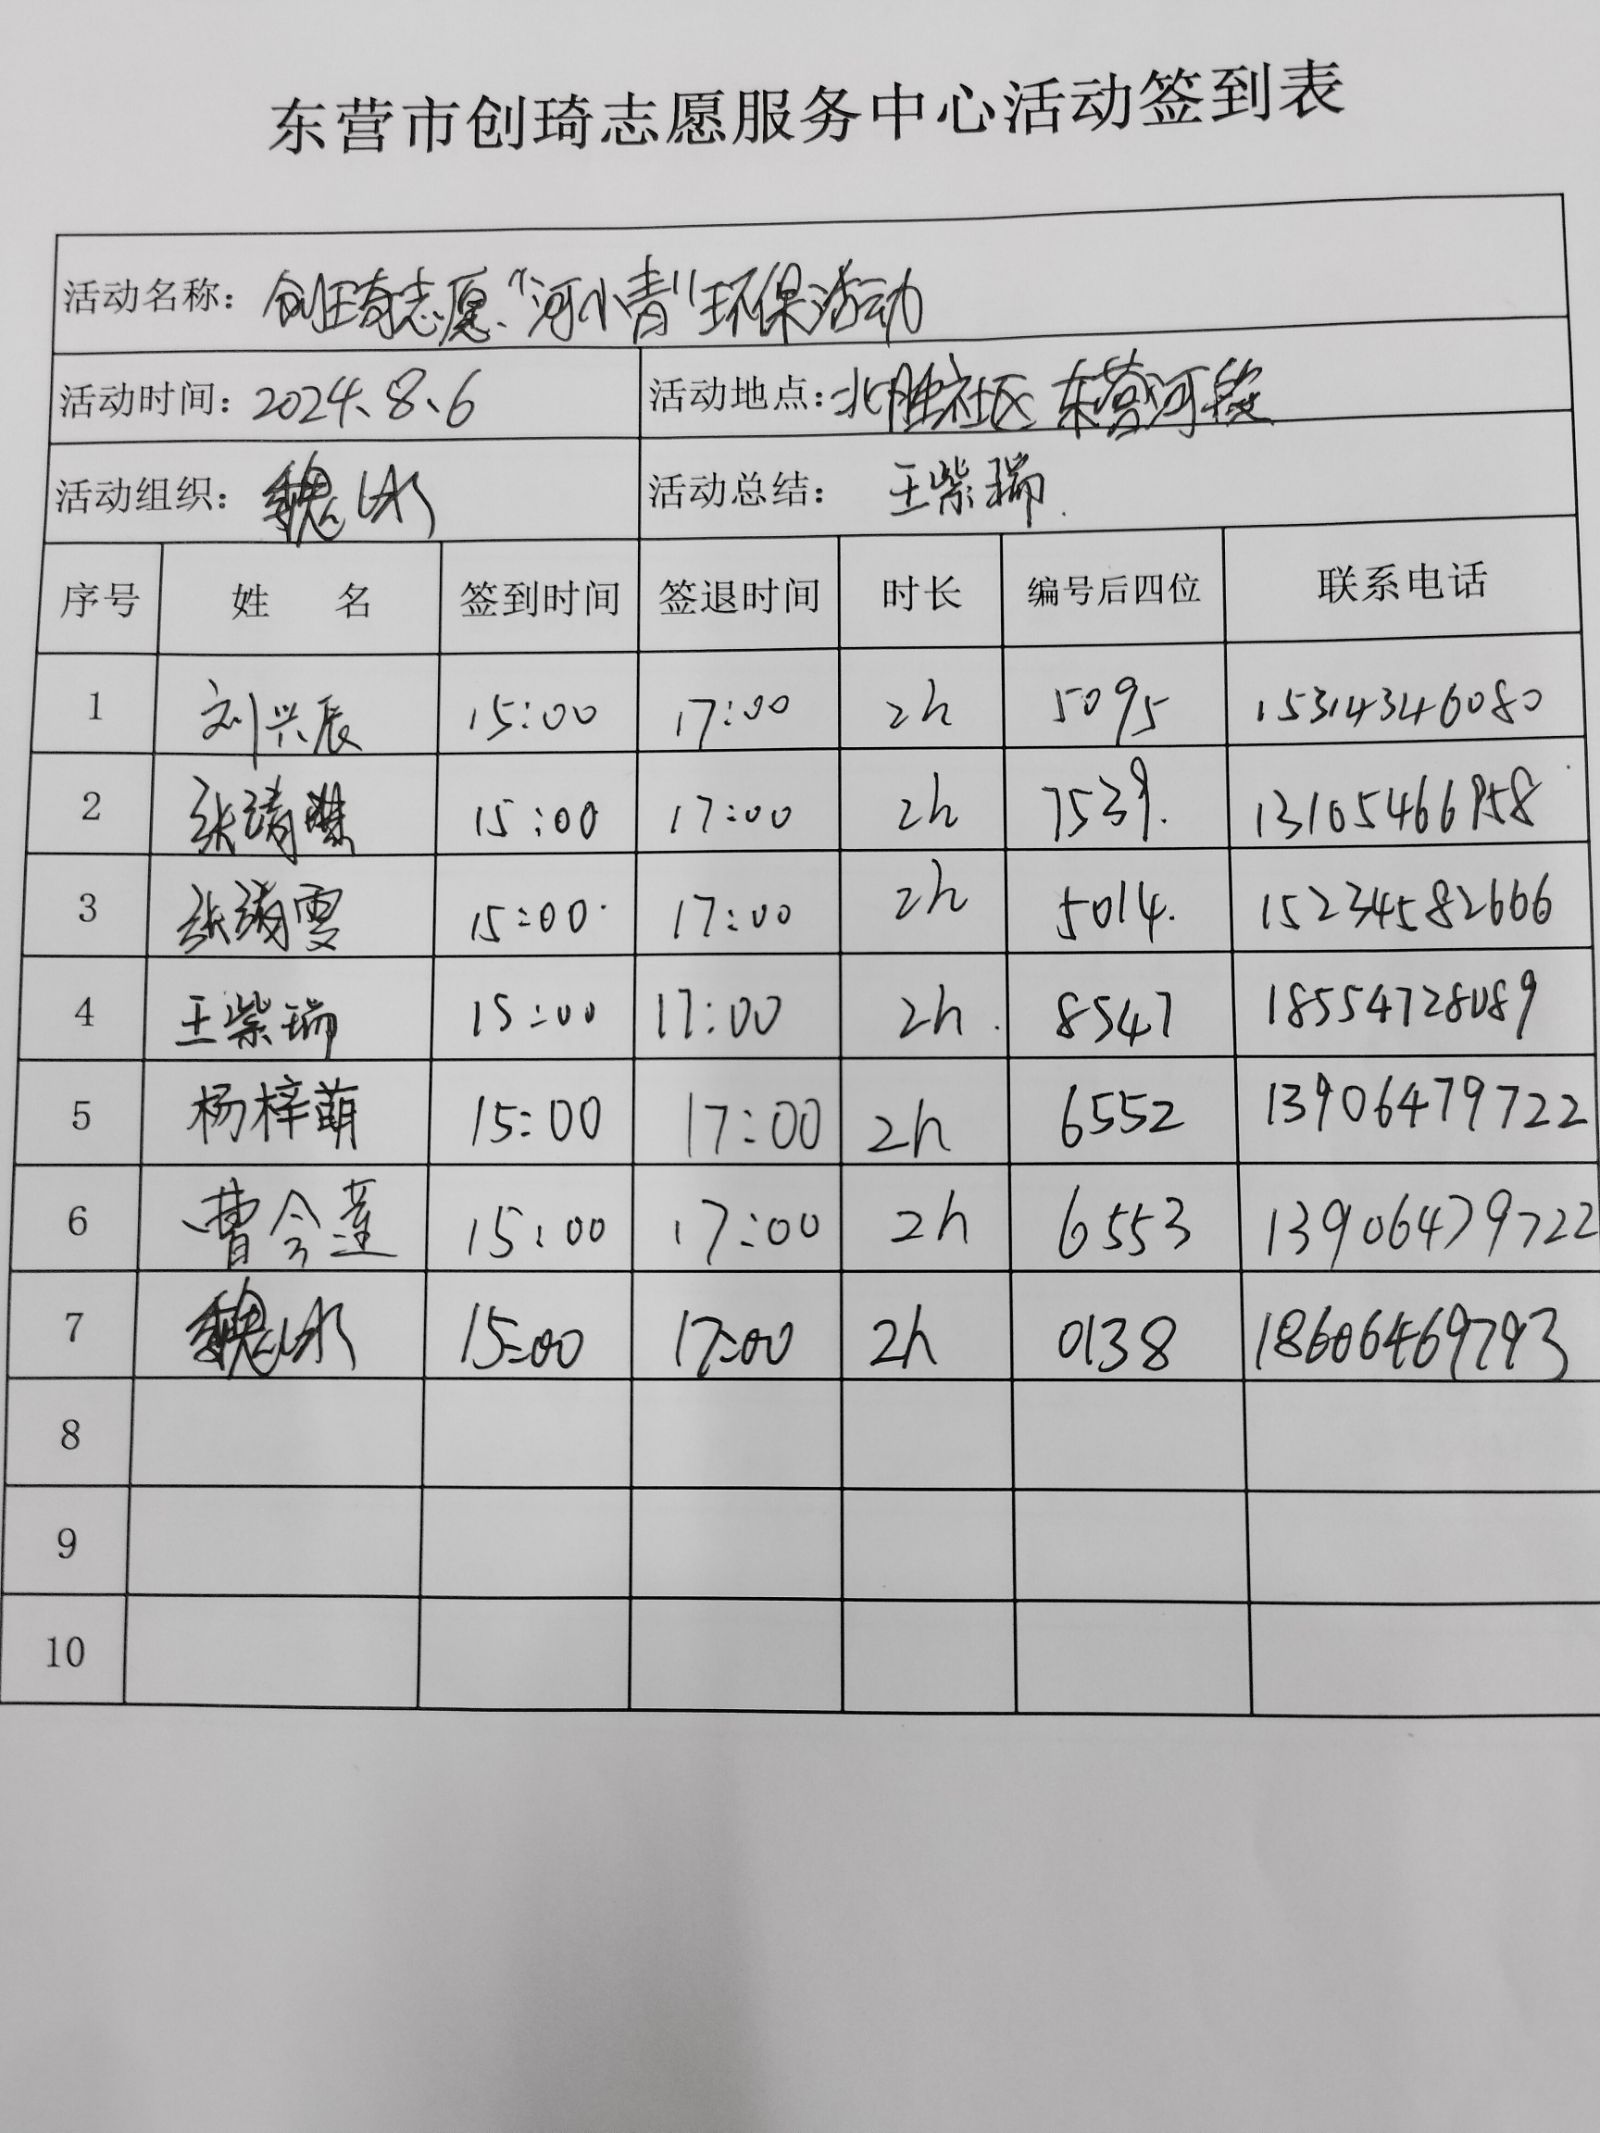 东营市创琦志愿服务中心活动签到表
活动名称：创琦志愿“河小青”环保活动
活动时间：2024、8、6 活动地点：北胜社区 东营河段
活动组织：魏冰 活动总结：王紫瑞
序号 姓 名 签到时间 签退时间 时长 编号后四位 联系电话
1 刘兴辰 15:00 17:00 2h 5095 15314346080
2 张靖 15:00 17:00 2h 7539. 13105466958
3 张靖雯 15:00 17:00 2h 5014. 15234582666
4 王紫瑞 15:00 17:00 2h. 8547 18554728089
5 杨梓萌 15:00 17:00 2h 6552 13906479722
6 曹令莲 15:00 17:00 2h 6553 13906479722
7 魏冰 15:00 17:00 2h 0138 18606469793
8
9
10